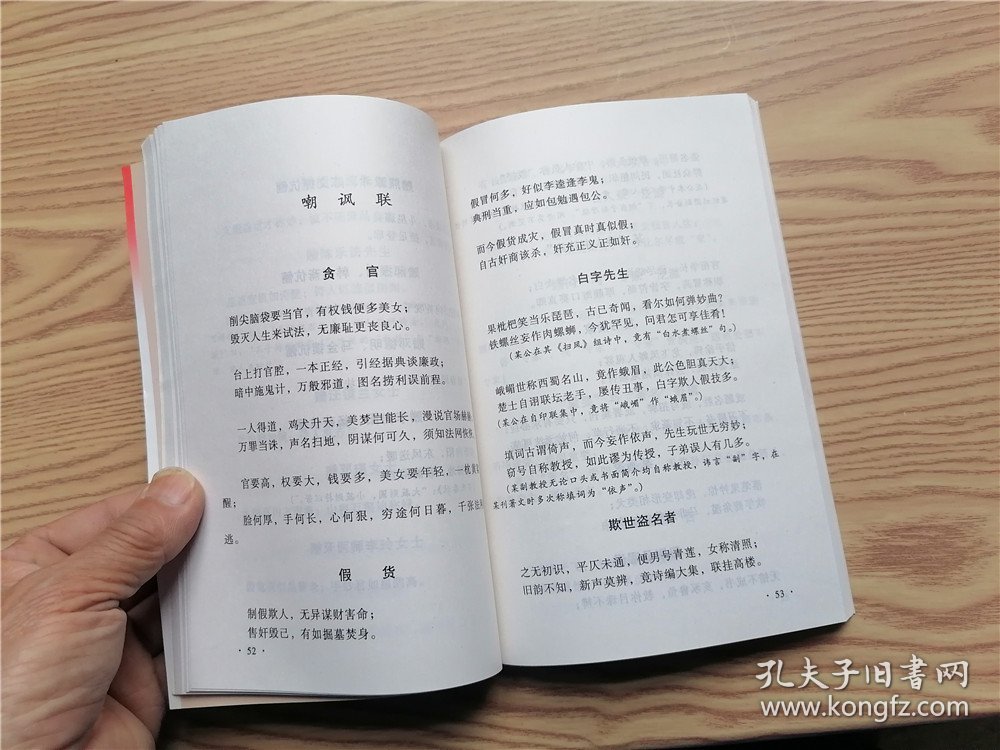 嘲讽联
贪官
削尖脑袋要当官，有权钱便多美女；
毁灭人生来试法，无廉耻更丧良心。
台上打官腔，一本正经，引经据典谈廉政；
暗中施鬼计，万般邪道，图名捞利误前程。
一人得道，鸡犬升天，美梦岂能长，漫说官场
万罪当诛，声名扫地，阴谋何可久，须知法网恢
官要高，权要大，钱要多，美女要年轻，一枕黄
醒；
脸何厚，手何长，心何狠，穷途何日暮，千张
逃。
假货
制假欺人，无异谋财害命；
售奸毁己，有如掘墓焚身。
·52·
假冒何多，好似李逵逢李鬼；
典刑当重，应如包勉遇包公。
而今假货成灾，假冒真时真似假；
自古奸商该杀，奸充正义正如奸。
白字先生
果枇杷笑当乐琵琶，古已奇闻，看尔如何弹妙曲？
铁螺丝妄作肉螺蛳，今犹罕见，问君怎可享佳肴！
（某公在其《扫风》组诗中，竟有“白水煮螺丝”句。）
峨嵋世称西蜀名山，竟作蛾眉，此公色胆真天大；
楚士自诩联坛老手，屡传丑事，白字欺人假技多。
（某公在自印联集中，竟将“峨嵋”作“蛾眉”。）
填词古谓倚声，而今妄作依声，先生玩世无穷妙；
窃号自称教授，如此谬为传授，子弟误人有几多。
（某副教授无论口头或书面简介均自称教授，讳言“副”字，在
某刊著文时多次称填词为“依声”。）
欺世盗名者
之无初识，平仄未通，便男号青莲，女称清照；
旧韵不知，新声莫辨，竟诗编大集，联挂高楼。
·53·
孔夫子旧书网
www.kongfz.com